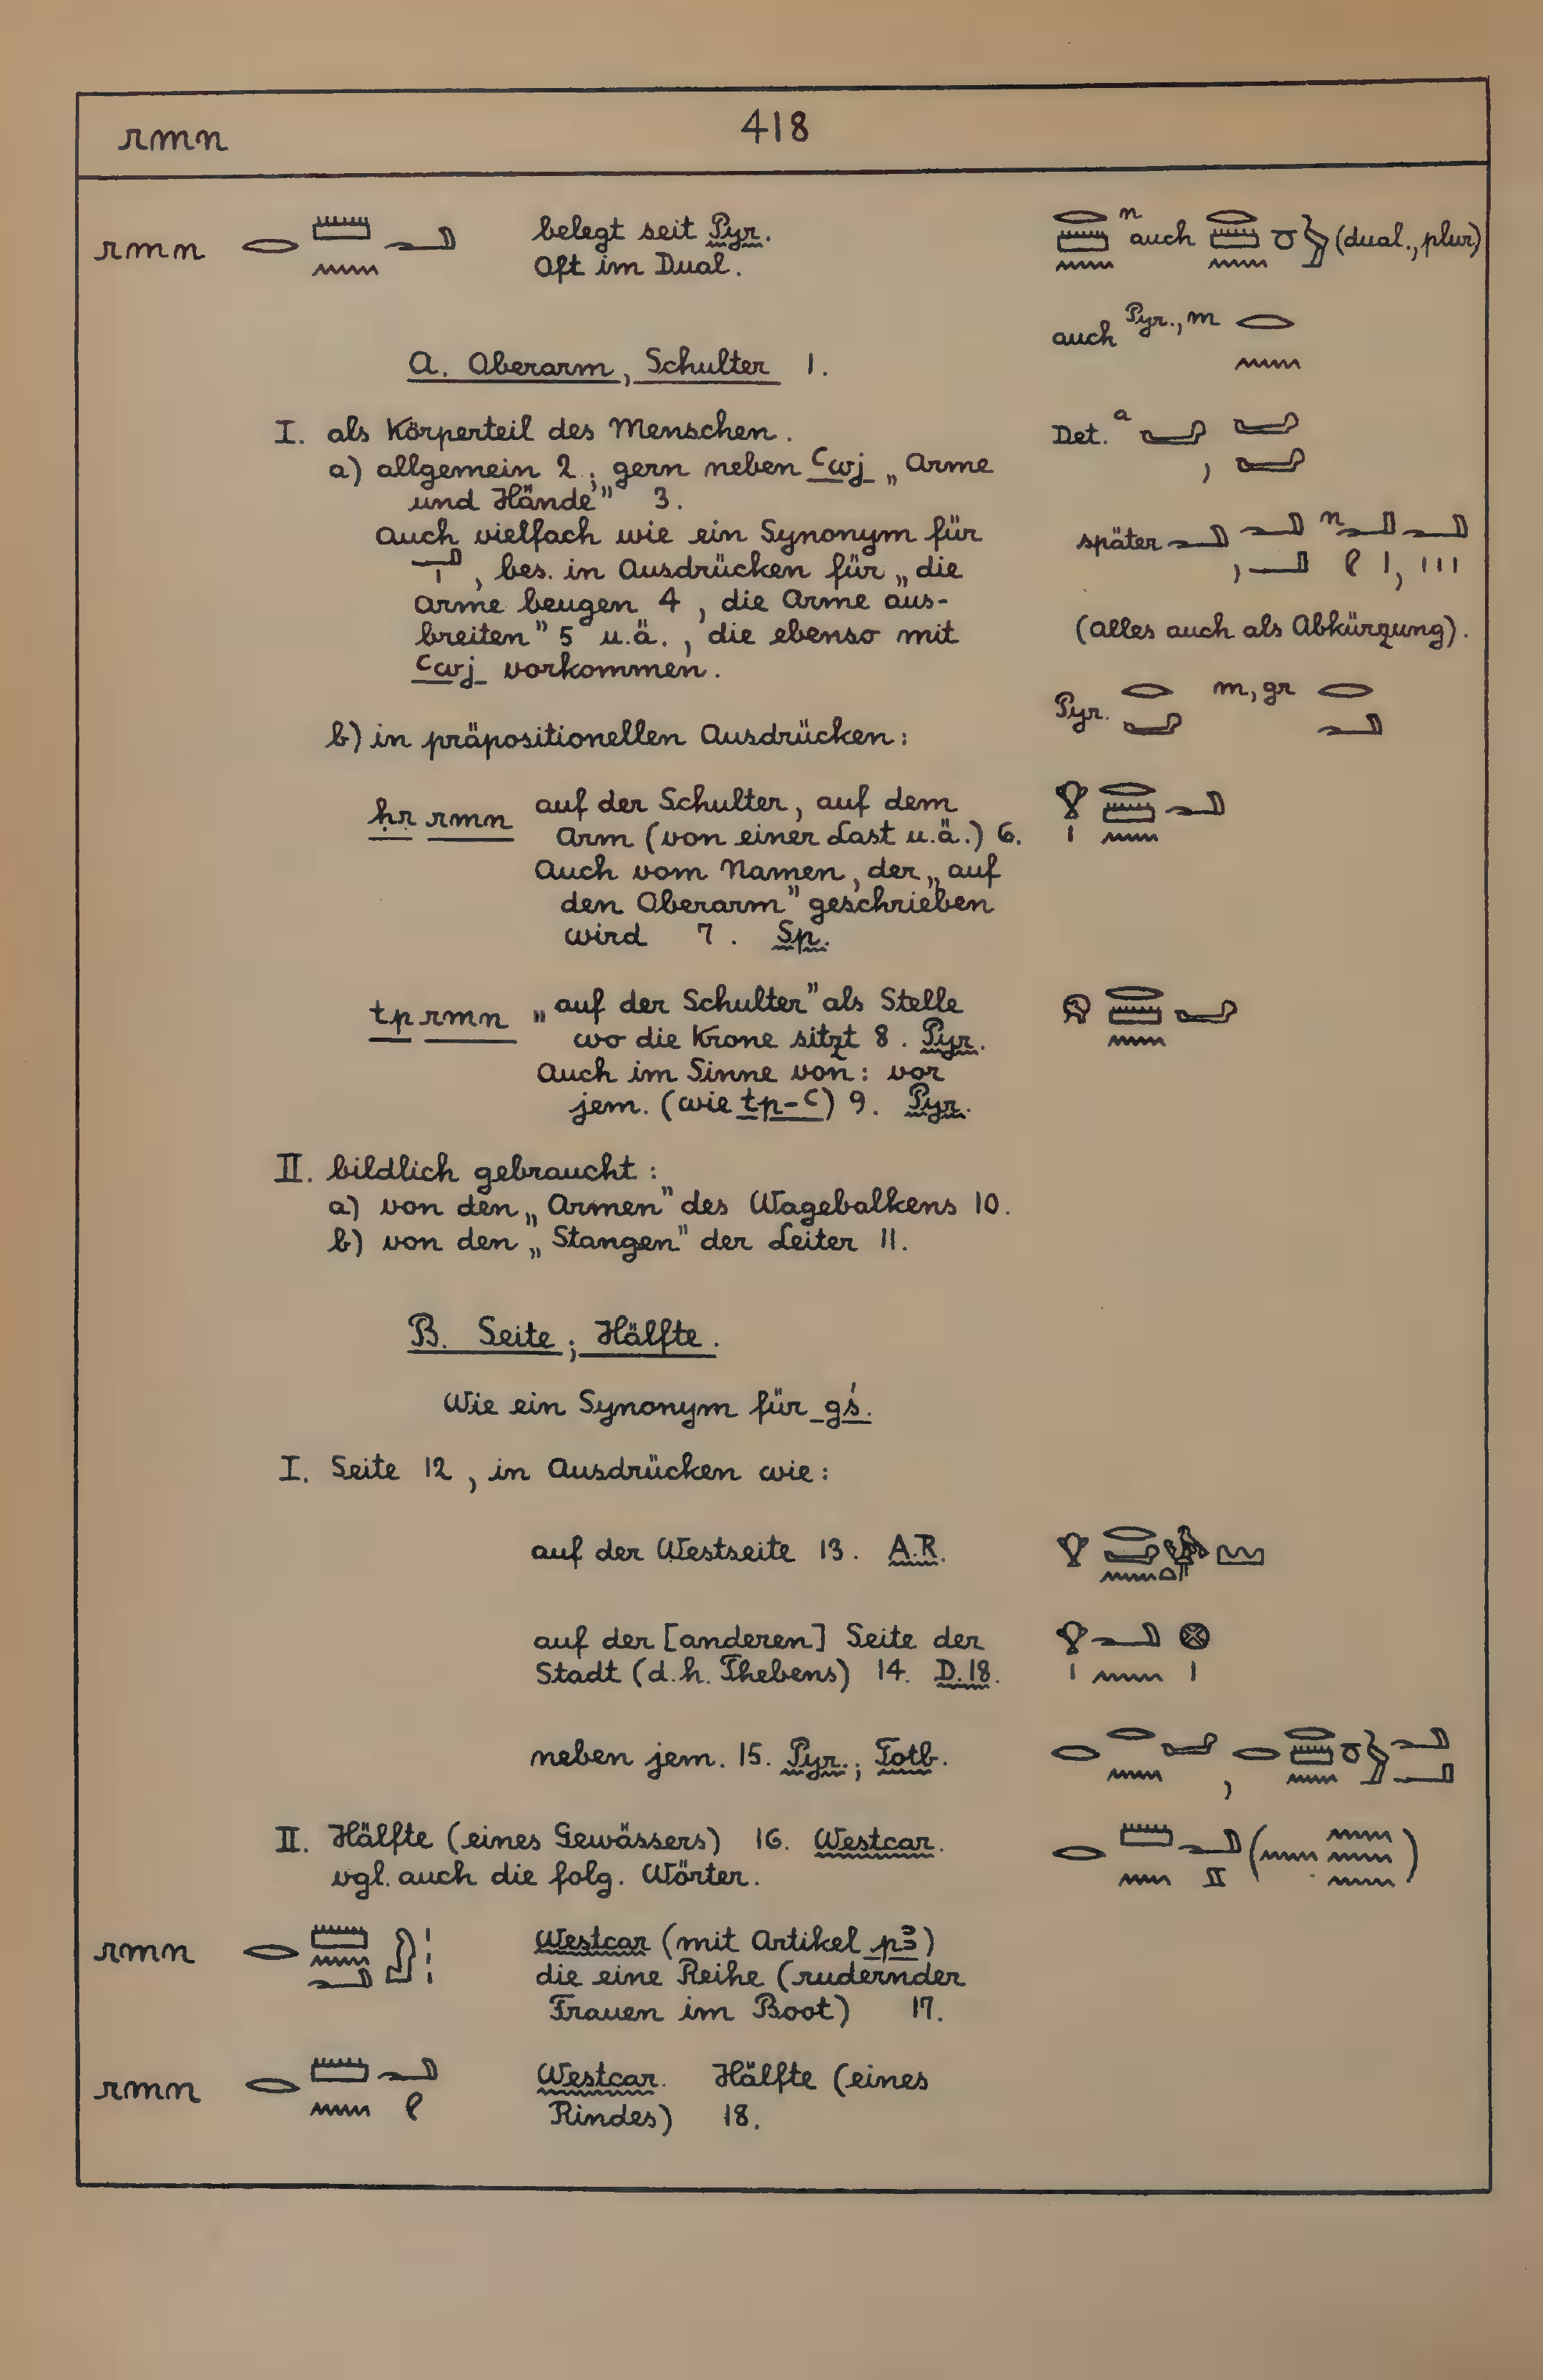 rmn 418
rmn 𓂋𓏠𓈖𓂝 belegt seit Pyr.
Oft im Dual.
n auch (dual., plur)
auch Pyr., m 𓂋𓈖
A. Oberarm, Schulter 1.
I. als Körperteil des Menschen.
a) allgemein 2; gern neben ꜥwj „Arme
und Hände" 3.
Auch vielfach wie ein Synonym für
𓂝𓏤, bes. in Ausdrücken für „die
Arme beugen 4, die Arme aus-
breiten" 5 u.ä., die ebenso mit
ꜥwj vorkommen.
Det. a
später n
(alles auch als Abkürzung).
Pyr. m, gr
b) in präpositionellen Ausdrücken:
ḥr rmn auf der Schulter, auf dem
Arm (von einer Last u.ä.) 6.
Auch vom Namen, der „auf
den Oberarm" geschrieben
wird 7. Sp.
tp rmn „auf der Schulter" als Stelle
wo die Krone sitzt 8. Pyr.
Auch im Sinne von: vor
jem. (wie tp-ꜥ) 9. Pyr.
II. bildlich gebraucht:
a) von den „Armen" des Wagebalkens 10.
b) von den „Stangen" der Leiter 11.
B. Seite; Hälfte.
Wie ein Synonym für gś.
I. Seite 12, in Ausdrücken wie:
auf der Westseite 13. A.R.
auf der [anderen] Seite der
Stadt (d.h. Thebens) 14. D.18.
neben jem. 15. Pyr.; Totb.
II. Hälfte (eines Gewässers) 16. Westcar.
vgl. auch die folg. Wörter.
rmn Westcar (mit Artikel pꜣ)
die eine Reihe (rudernder
Frauen im Boot) 17.
rmn Westcar. Hälfte (eines
Rindes) 18.